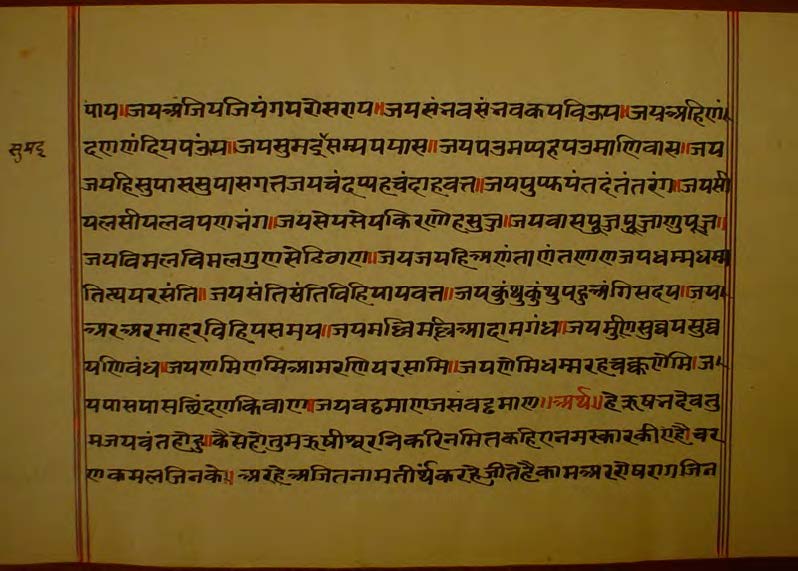 पाय॥जयअजियजियंगपरोसराय॥जयसंनवसंनवकयविऊय॥जयअहिणं
सुमइ
दणणंदियपऊय॥जयसुमईसम्यपयास॥जयपउमप्पहपउमाणिवास॥जय
जयहिसुपाससुपासगत्तजयचंदप्पहचंदाहवत्त॥जयपुप्फयंतदंतंतरंग॥जयसी
यलसीयलवयणनंग॥जयसेयसेयकिरणोहसुज्ज॥जयवासपूज्जपूज्जाणुपूज्ज॥
जयविमलविमलगुणसेढिठाण॥जयजयहिअणंताणंतणाणजयधम्मधम्म
तित्थयरसंति॥जयसंतिसंतिविहियायवत्त॥जयकुंथुकुंथुपहुअंगिसदय॥जय
अरअरमाहरविहियसमय॥जयमल्लिमल्लिआदामगंध॥जयमुणिसुव्वयसुव्व
यणिबंध॥जयणमिणमिआमरणियरसामि॥जयणेमिधम्मरहचक्कणेमि॥ज
यपासपासछिंदणकिवाण॥जयवढमाणजसवढमाण॥अर्थ॥हेऋषनदेवतु
मजयवंतहोहु॥कैसेहोतुमऋषीश्वरनिकरिनमितकहिएनमस्कारकीएहौचर
णकमलजिनके॥अरहेअजितनामतीर्थंकरहेजीतेहैकामअररोषरागजिन